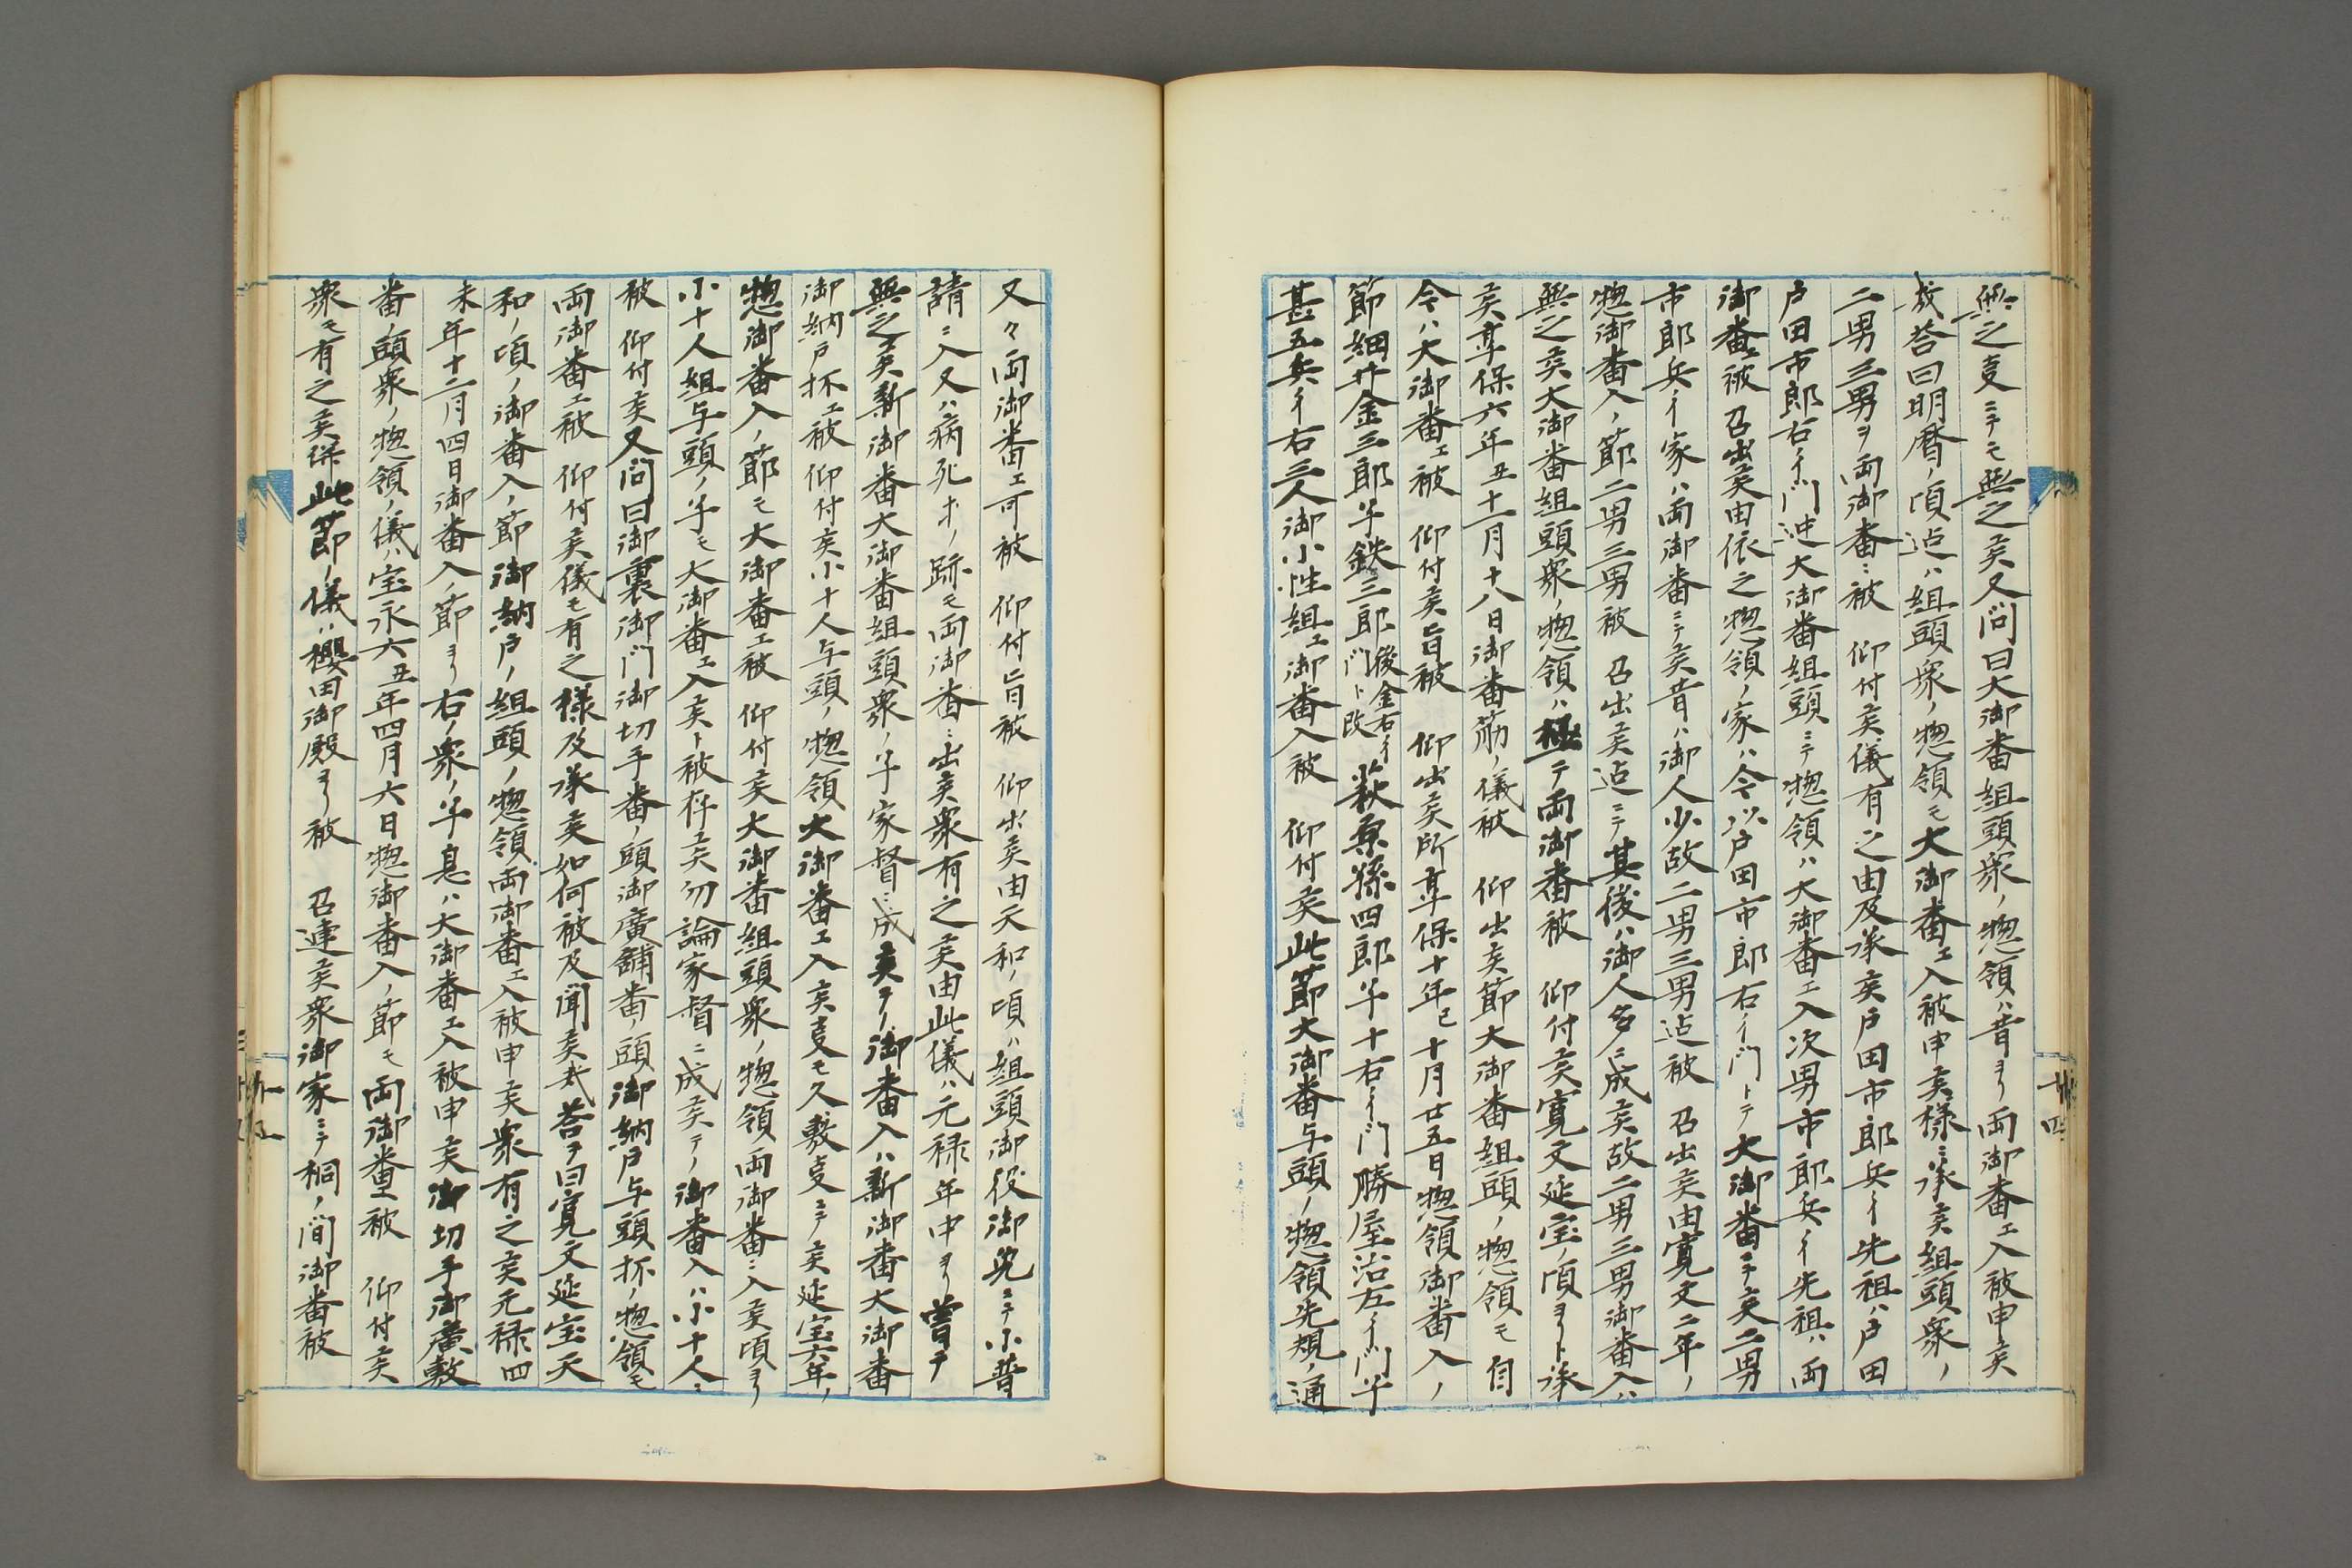 無之叓ニテモ無之矦又問曰大御番組頭衆ノ惣領ハ昔ヨリ両御番エ入被申矦
哉答曰明暦ノ頃迠ハ組頭衆ノ惣領モ大御番エ入被申矦様ニ承矦組頭衆ノ
二男三男ヲ両御番ニ被 仰付矦儀有之由及承矦戸田市郎兵衛先祖ハ戸田
戸田市郎右衛門迚大御番組頭ニテ惣領ハ大御番エ入次男市郎兵衛先祖ハ両
御番エ被 召出矦由依之惣領ノ家ハ今以戸田市郎右衛門トテ大御番ニテ矦二男
市郎兵衛家ハ両御番ニテ矦昔ハ御人少故二男三男迠被 召出矦由寛文二年ノ
惣御番入ノ節二男三男被 召出矦迠ニテ其後ハ御人多ニ成矦故二男三男御番入ハ
無之矦大御番組頭衆ノ惣領ハ極テ両御番被 仰付矦寛文延宝ノ頃ヨリト承
矦享保六年丑十一月十八日御番筋ノ儀被 仰出矦節大御番組頭ノ惣領モ自
今ハ大御番エ被 仰付矦旨被 仰出矦所享保十年巳十月廿五日惣領御番入ノ
節細井金三郎忰鉄三郎後金右衛門ト改萩原孫四郎忰十右衛門勝屋治左衛門忰
甚五兵衛右三人御小性組エ御番入被 仰付矦此節大御番与頭ノ惣領先規ノ通
又々両御番エ可被 仰付旨被 仰出矦由天和ノ頃ハ組頭御役御免ニテ小普
請ニ入又ハ病死オノ跡モ両御番ニ出矦衆有之矦由此儀ハ元禄年中ヨリ嘗テ
無之矦新御番大御番組頭衆ノ忰家督ニ成矦テノ御番入ハ新御番大御番
御納戸抔エ被仰付矦小十人与頭ノ惣領大御番エ入矦叓モ久敷叓ニテ矦延宝六年ノ
惣御番入ノ節モ大御番エ被 仰付矦大御番組頭衆ノ惣領両御番ニ入矦頃ヨリ
小十人組与頭ノ忰モ大御番エ入矦ト被存矦勿論家督ニ成矦テノ御番入ハ小十人ニ
被 仰付矦又問曰御裏御門御切手番ノ頭御廣舗番ノ頭御納戸与頭抔ノ惣領モ
両御番エ被 仰付矦儀モ有之様及承矦如何被及聞矦哉答テ曰寛文延宝天
和ノ頃ノ御番入ノ節御納戸ノ組頭ノ惣領両御番エ入被申矦衆有之矦元禄四
未年十二月四日御番入ノ節ヨリ右ノ衆ノ忰息ハ大御番エ入被申矦御切手御廣敷
番ノ頭衆ノ惣領ノ儀ハ宝永六丑年四月六日惣御番入ノ節モ両御番エ被 仰付矦
衆モ有之矦得此節ノ儀ハ櫻田御殿ヨリ被 召連矦衆御家ニテ桐ノ間御番被
廿四